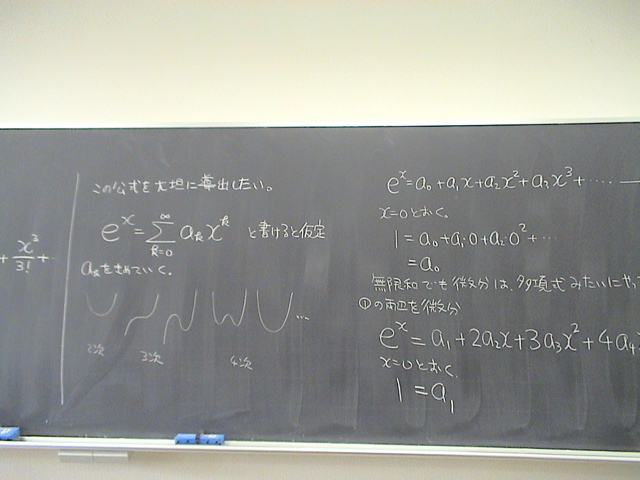 + x³/3! +
この公式を大胆に導出したい。
eˣ = ∑_{k=0}^{∞} aₖxᵏ と書けると仮定
aₖを求めていく。
2次 3次 4次
eˣ = a₀ + a₁x + a₂x² + a₃x³ + ……
x=0とおく。
1 = a₀ + a₁·0 + a₂·0² + …
= a₀
無限和でも微分は、多項式みたいにや
①の両辺を微分
eˣ = a₁ + 2a₂x + 3a₃x² + 4a₄
x=0とおく。
1 = a₁